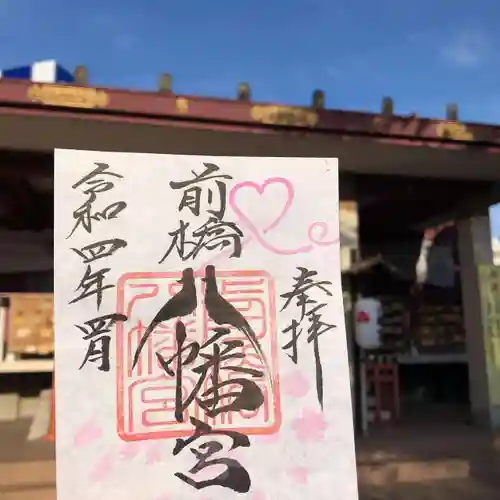 奉拝
前橋
八幡宮
令和四年四月